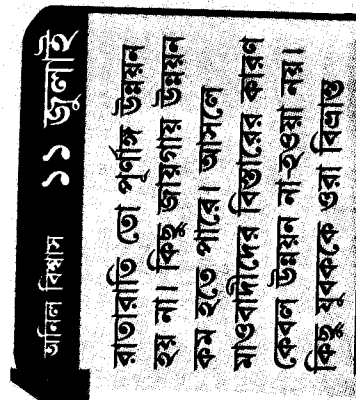 অনিল বিশ্বাস ১১ জুলাই
রাতারাতি তো পূর্ণাঙ্গ উন্নয়ন
হয় না। কিছু জায়গায় উন্নয়ন
কম হতে পারে। আসলে
মাওবাদীদের বিস্তারের কারণ
কেবল উন্নয়ন না-হওয়া নয়।
কিছু যুবককে ওরা বিভ্রান্ত